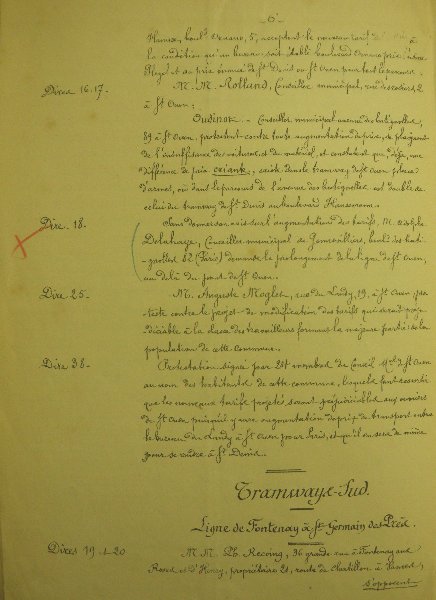 - 6 -
Plumier, boul.d Ornano, 5, acceptent le nouveau tarif
à la condition qu'un bureau soit établi boulevard Ornano
et au prix de St Denis ou St Ouen pour tout le parcours.
Dires 16-17-
M. M. Rolland, Conseiller municipal,
à St Ouen;
Oudinot - Conseiller municipal avenue des batignolles,
29 à St Ouen, protestent contre toute augmentation de prix, se plaignent
de l'insuffisance des voitures et du matériel, et constatent que, déjà, une
différence de prix criante, existe dans le tramway de St Ouen place
d'armes, où dans le parcours de l'avenue des batignolles est double de
celui du tramway de St Denis au boulevard Haussmann.
Dire 18-
Sans donner son avis sur l'augmentation des tarifs, M.
Delahaye, Conseiller municipal de Gennevilliers, boul.d des bati-
-gnolles 62 (Paris) demande le prolongement de la ligne de St Ouen,
au delà du pont de St Ouen.
Dire 25-
M. Auguste Moglet, rue du Landy, 19, à St Ouen, pro-
teste contre le projet de modification des tarifs qui serait préju-
diciable à la classe des travailleurs formant la majeure partie de la
population de cette commune.
Dire 38-
Protestation signée par 21 membres du Conseil M.al de St Ouen
au nom des habitants de cette commune, laquelle fait ressortir
que les nouveaux tarifs projetés seront préjudiciables aux ouvriers
de St Ouen puisqu'il y aura augmentation de prix de transport entre
le bureau du Landy à St Ouen pour Paris, et qu'il en sera de même
pour se rendre à St Denis.
Tramways-Sud.
Ligne de Fontenay à St Germain des Prés.
Dires 19-1-20
M. M. Recoing, 36 grande rue à Fontenay aux
Roses et d'Henry, propriétaire 21, route de Chatillon à
s'opposent